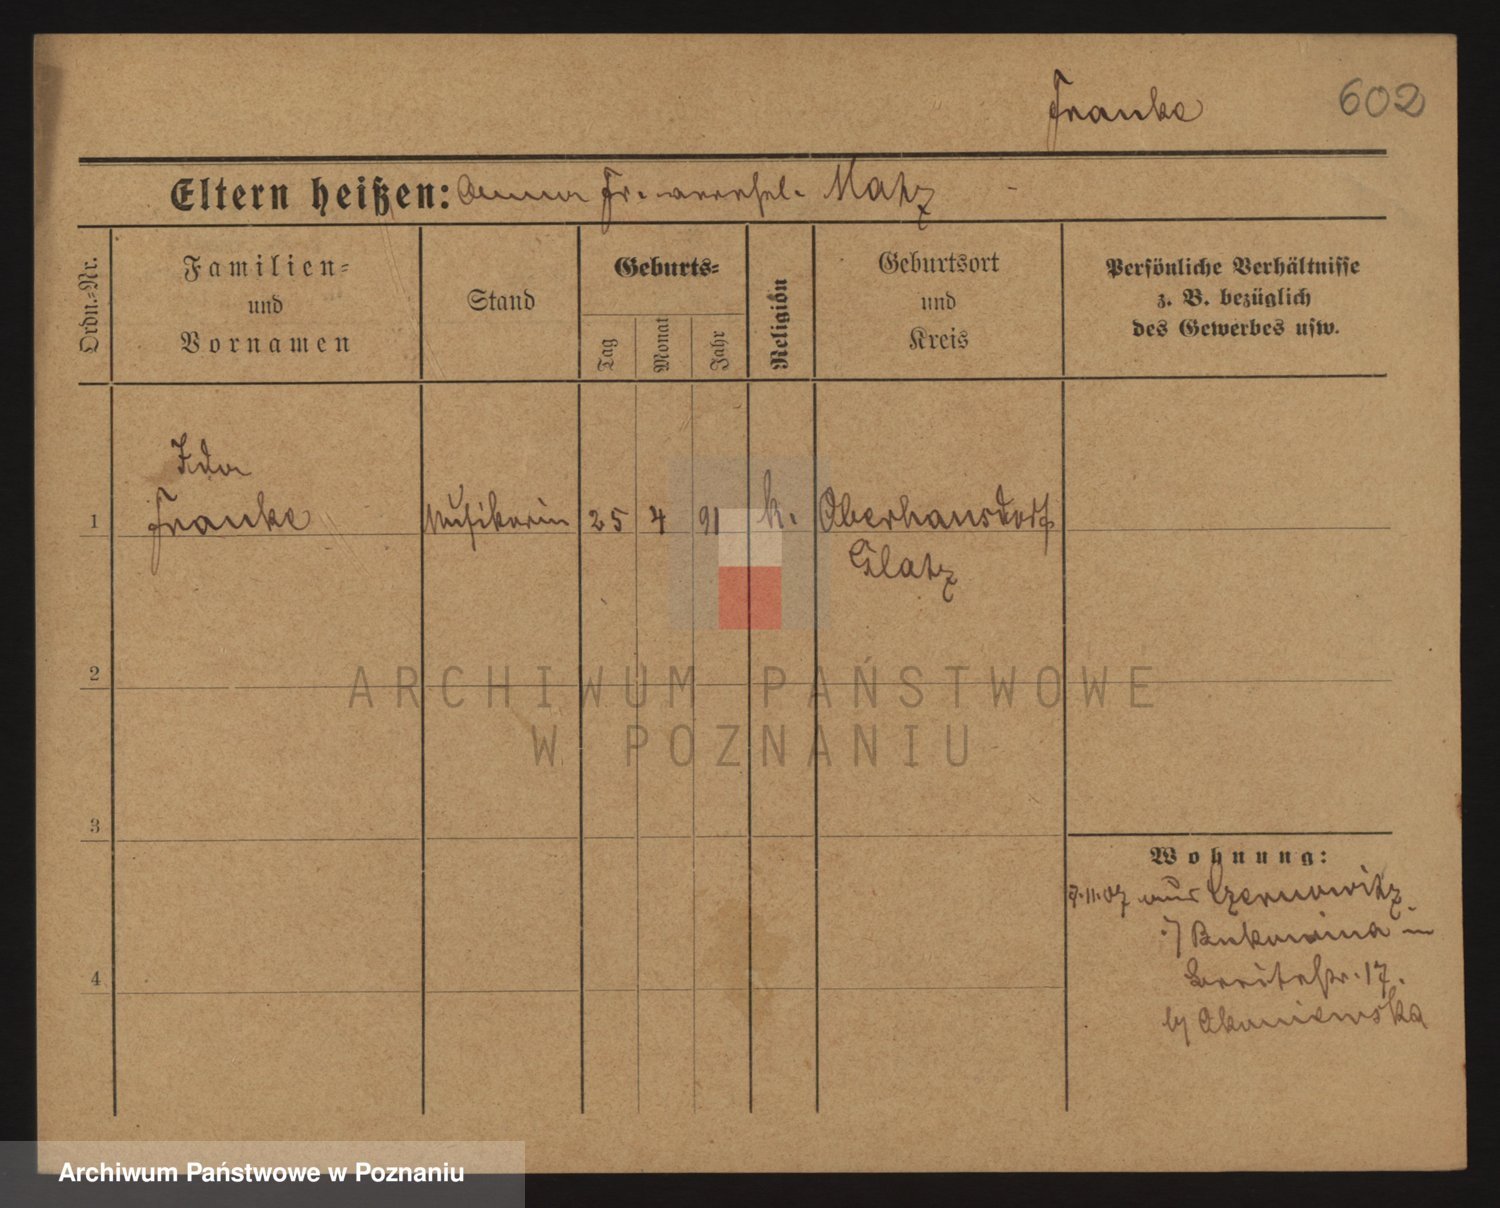 Franke
602
Eltern heißen: Anna Fr. verehel. Matz
Ordn.-Nr.
Familien-
und
Vornamen
Stand
Geburts-
Tag
Monat
Jahr
Religion
Geburtsort
und
Kreis
Persönliche Verhältnisse
z. B. bezüglich
des Gewerbes usw.
Ida
1 Franke Musikerin 25 4 91 k. Oberhansdorf
Glatz
2
3
4
Wohnung:
7.11.07 aus Czernowitz
i/ Bukowina in
Breitestr. 17.
by
ARCHIWUM PAŃSTWOWE
W POZNANIU
Archiwum Państwowe w Poznaniu